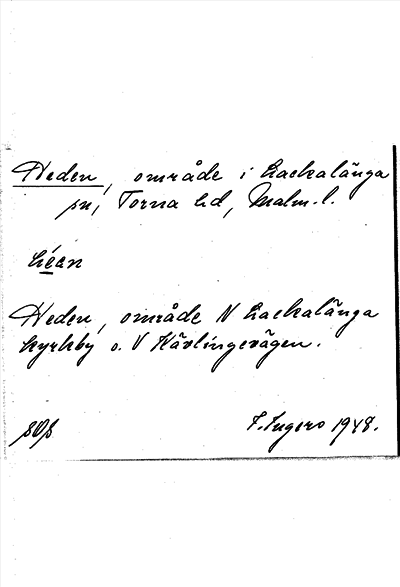 Heden, område i Lackalänga
sn, Torna hd, Malm. l.
héan
Heden, område N Lackalänga
kyrkby o. V Kävlingevägen.
SOS
F. Ingers 1948.